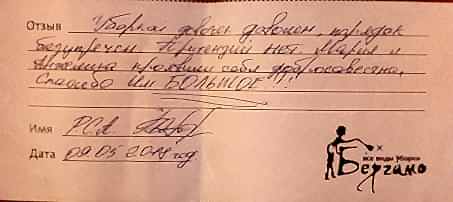 Отзыв Уборкой очень доволен, порядок
безупречен. Притензий нет. Мария и
Анжелика проявили себя добросовестно.
Спасибо Им БОЛЬШОЕ!!!
Имя Р.С.А.
Дата 09.05.2019 год
все виды уборки
Бергамо